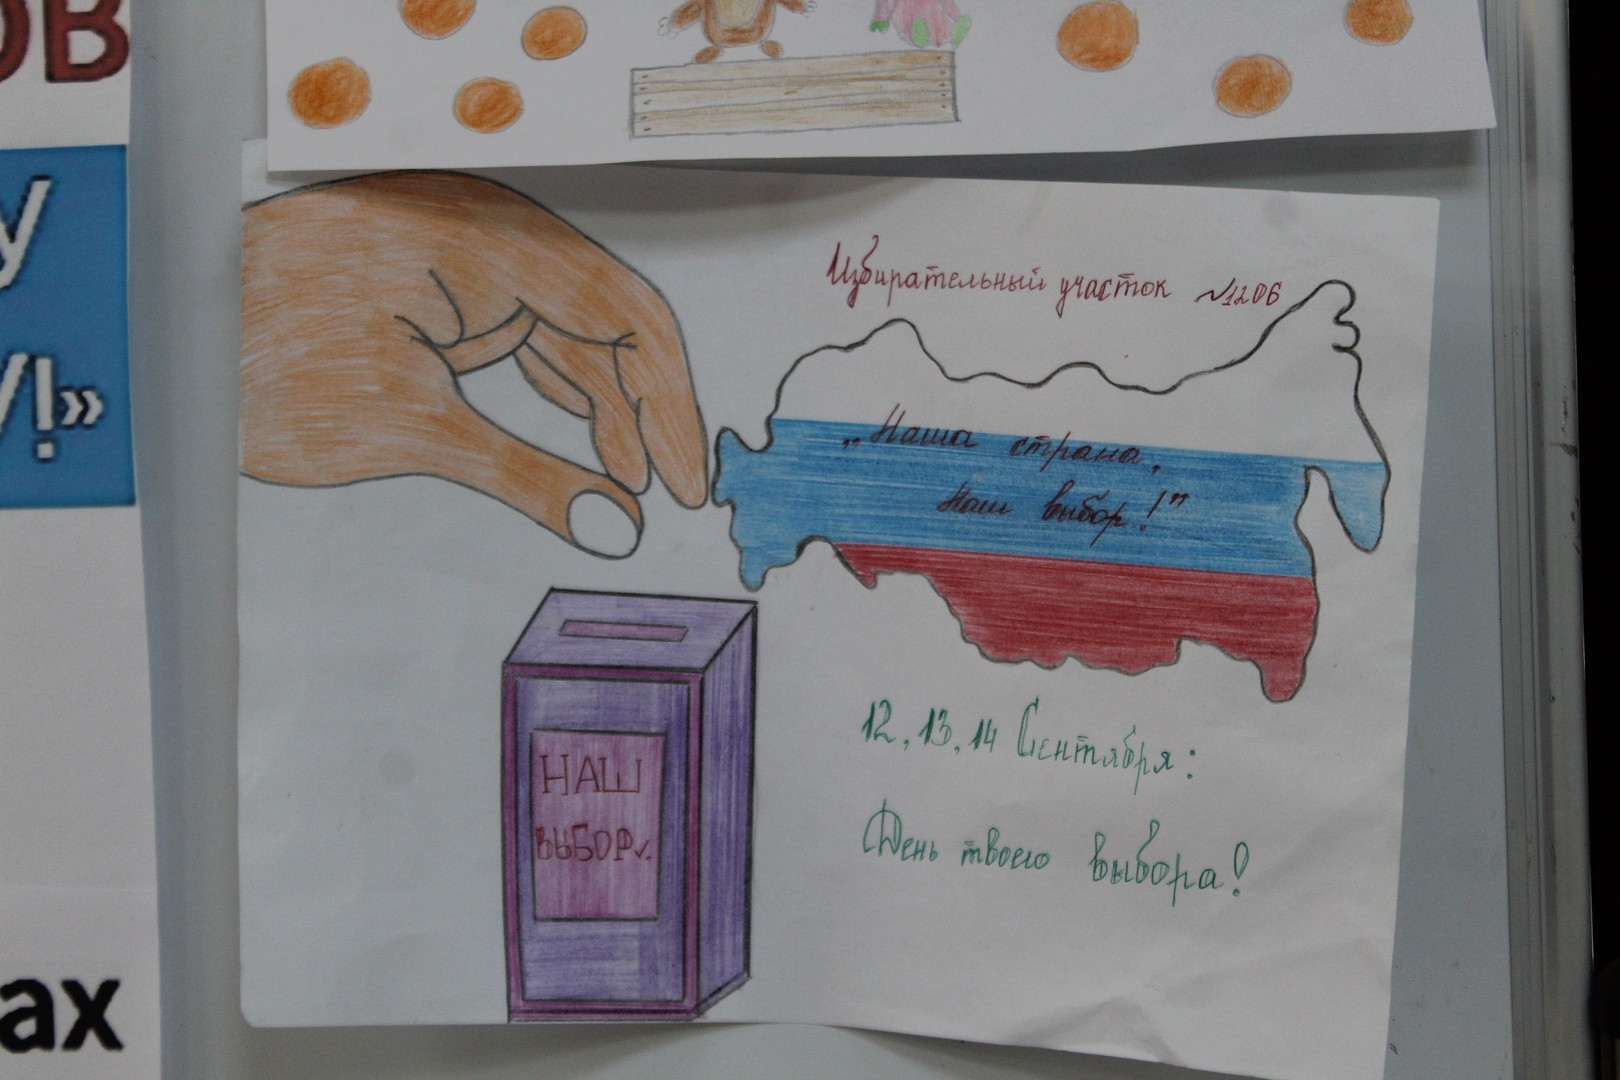 ОВ
У
У!»
ах
Избирательный участок №1206
„Наша страна,
Наш выбор!”
НАШ
ВЫБОР✓.
12, 13, 14 Сентября:
День твоего выбора!